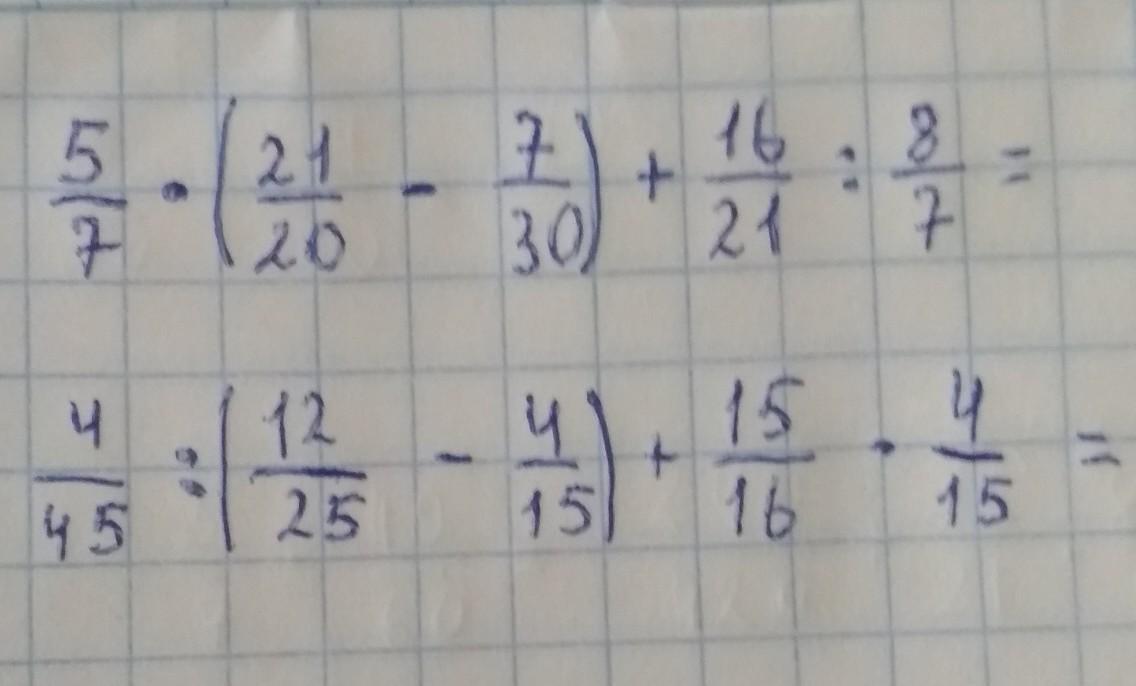 5/7 · (21/20 - 7/30) + 16/21 : 8/7 =
4/45 : (12/25 - 4/15) + 15/16 · 4/15 =